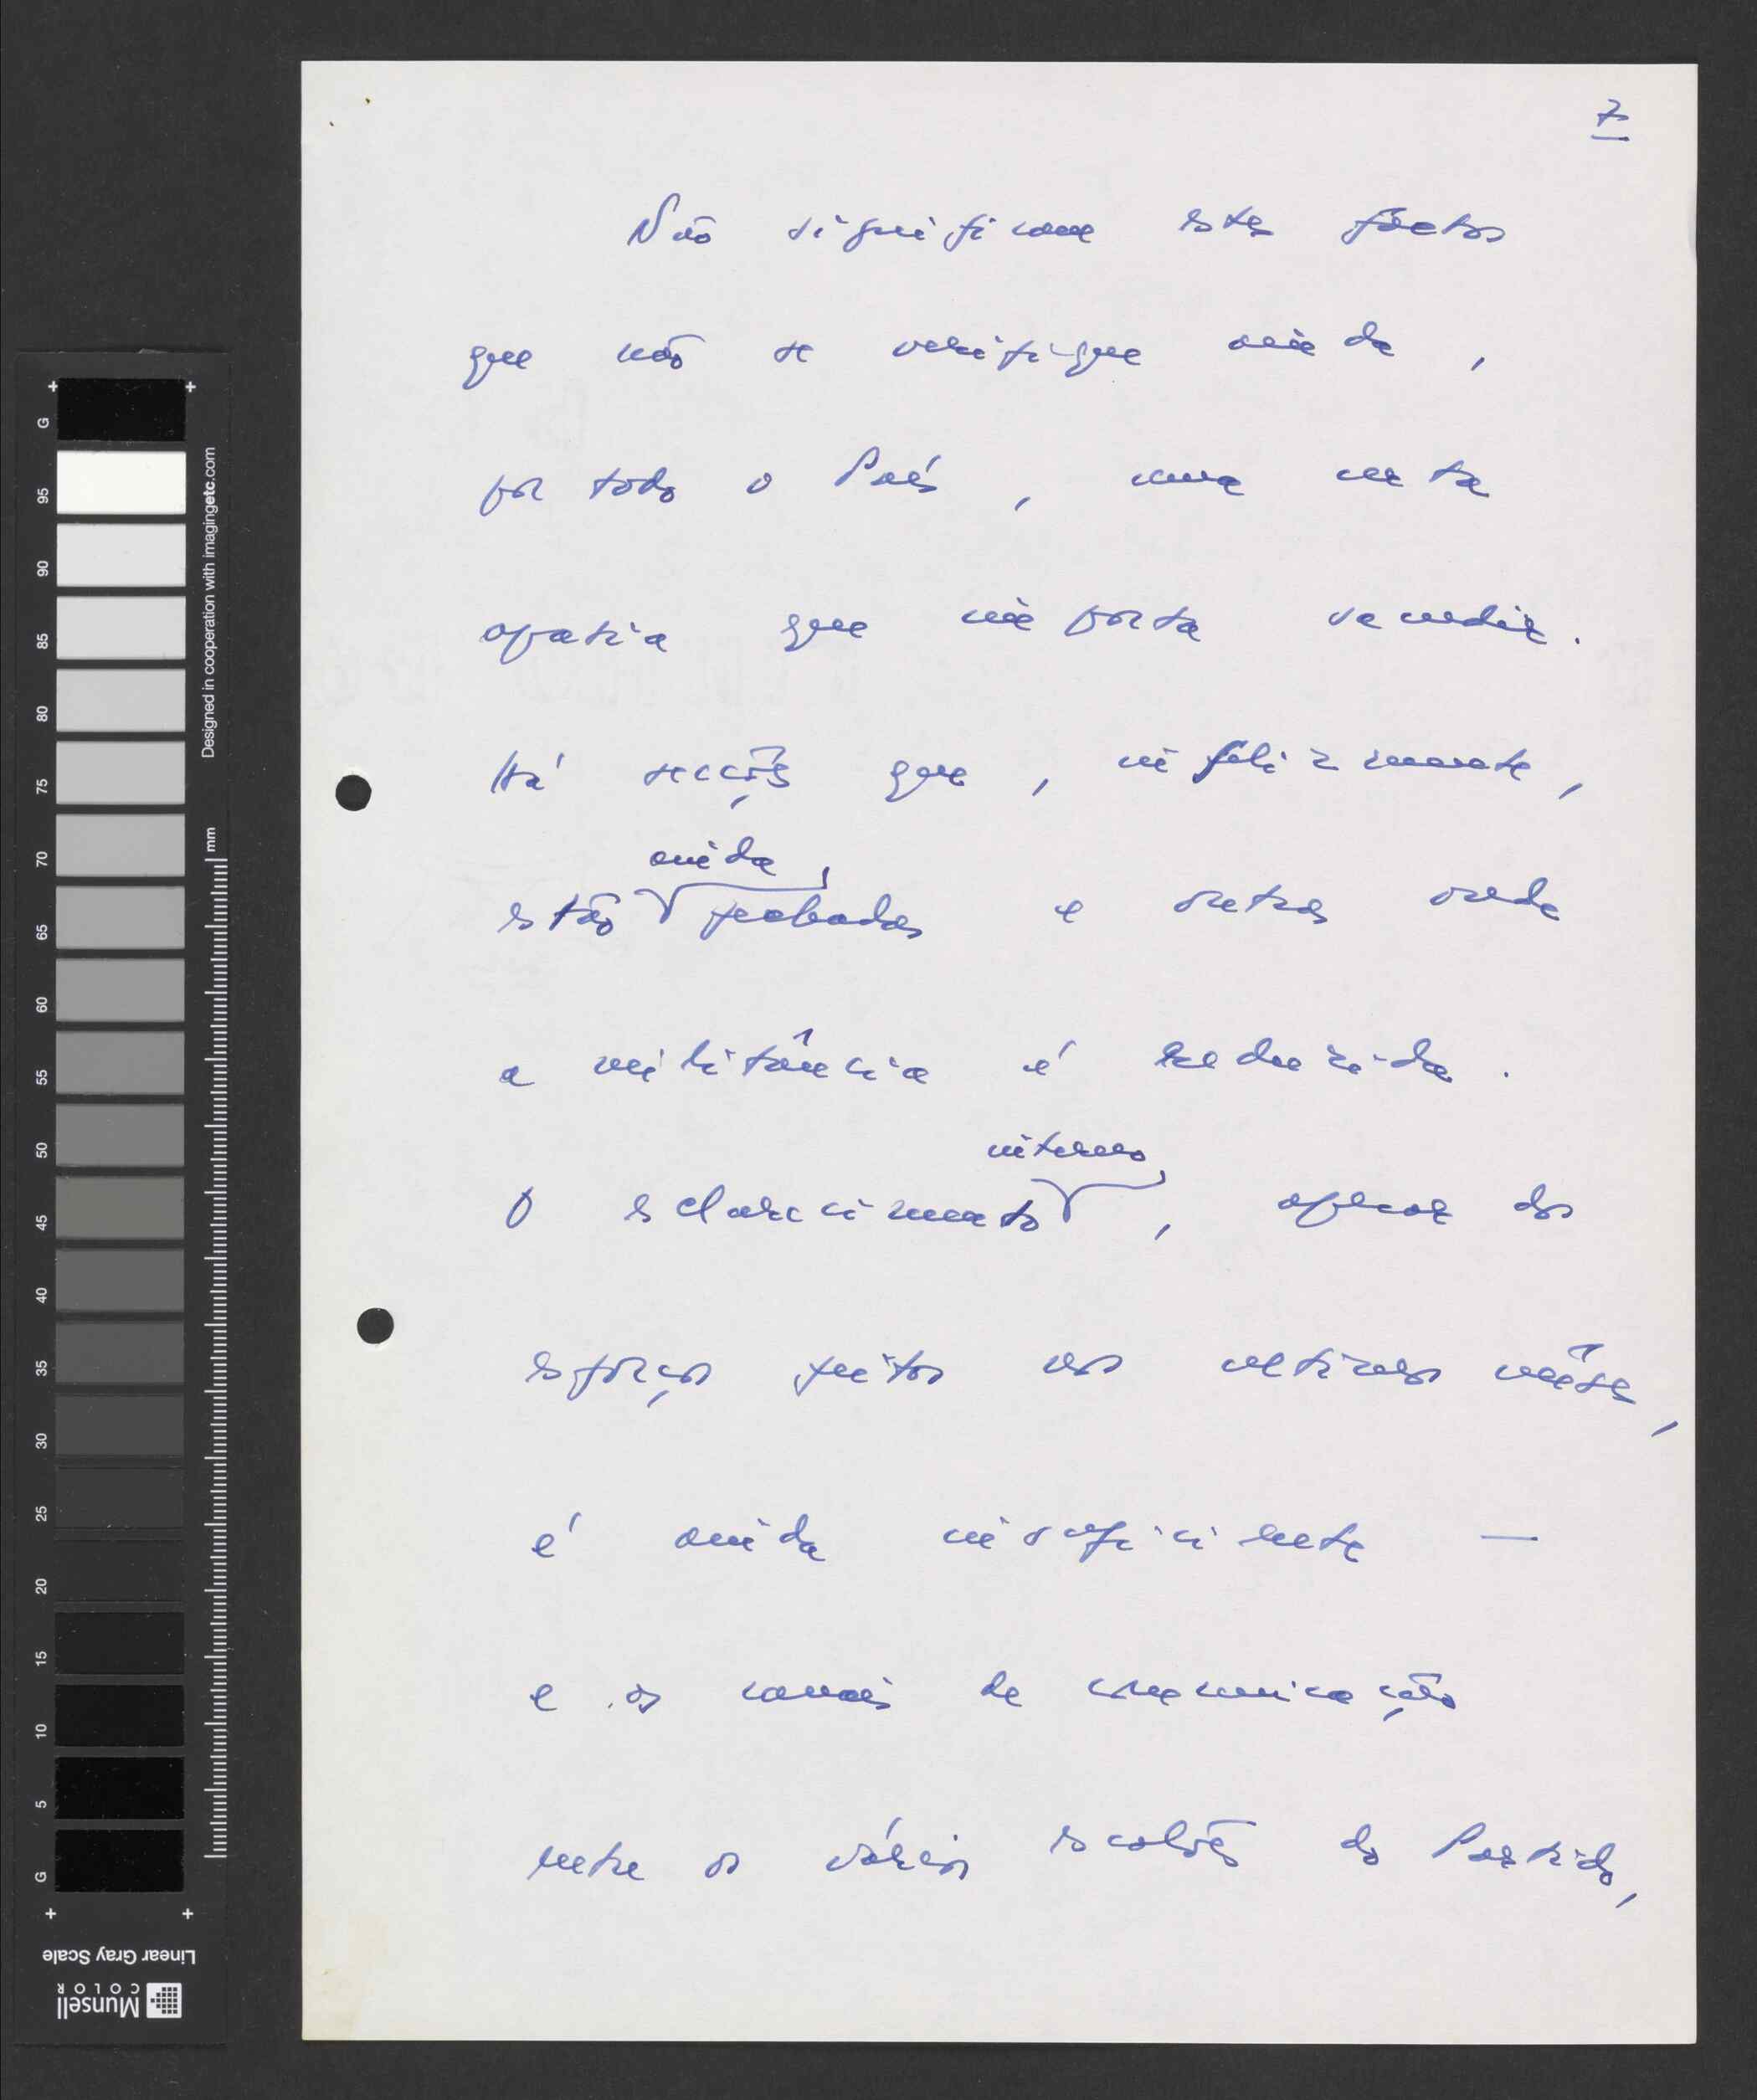 7
Não significam estes factos
que não se verifique ainda,
por todo o País, uma certa
apatia que importa sacudir.
Há secções que, infelizmente,
ainda
estão fechadas e outras onde
a militância é reduzida.
interno
O esclarecimento, apesar dos
esforços feitos nos ultimos mêses,
é ainda insuficiente —
e os canais de comunicação
entre os vários escalões do Partido,
G
95
90
85
80
75
70
65
60
55
50
45
40
35
30
25
20
15
10
5
G
Designed in cooperation with imagingetc.com
mm
Linear Gray Scale
Munsell
COLOR